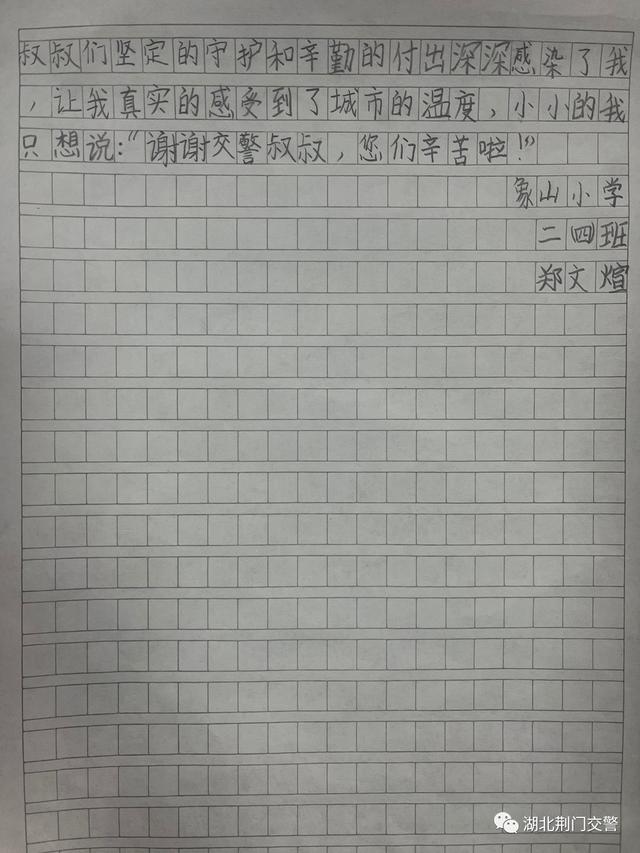 叔叔们坚定的守护和辛勤的付出深深感染了我
，让我真实的感受到了城市的温度，小小的我
只想说：“谢谢交警叔叔，您们辛苦啦！”
象山小学
二四班
郑文煊
湖北荆门交警